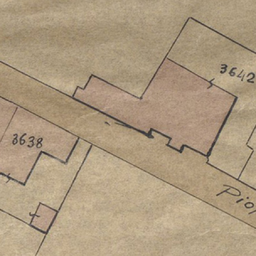 3642
3638
Piop